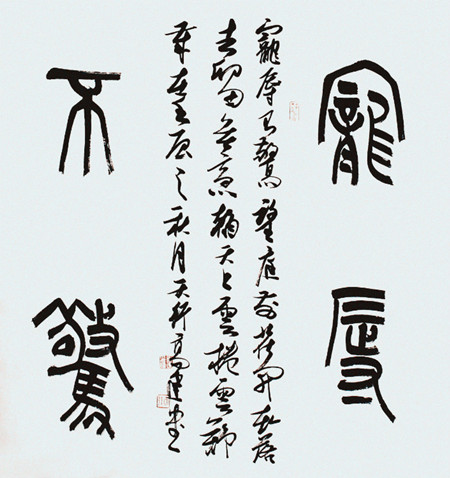 寵辱
寵辱不驚望庭前花開花落
去留無意天上雲捲雲舒
之秋月天軒高建書
不驚